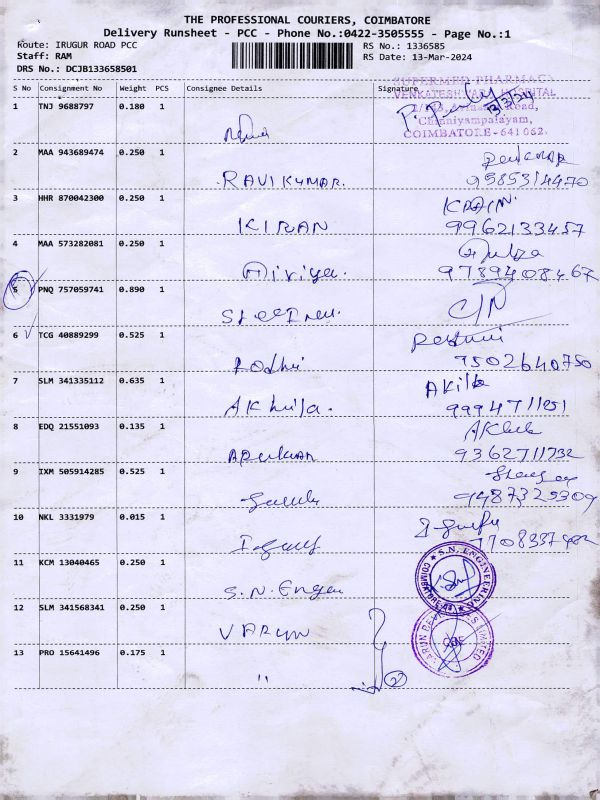 THE PROFESSIONAL COURIERS, COIMBATORE
Delivery Runsheet - PCC - Phone No.:0422-3505555 - Page No.:1
Route: IRUGUR ROAD PCC
Staff: RAM
DRS No.: DCJB133658501
RS No.: 1336585
RS Date: 13-Mar-2024
S No Consignment No Weight PCS Consignee Details Signature
SUPERMED PHARMACY
VENKATESHWARA HOSPITAL
Road,
Chinniyampalayam,
COIMBATORE - 641 062.
13/3/24
1 TNJ 9688797 0.180 1
2 MAA 943689474 0.250 1
RAVI KUMAR.
3 HHR 870042300 0.250 1
KIRAN 9962133457
4 MAA 573282081 0.250 1
9789408467
5 PNQ 757059741 0.890 1
6 TCG 40889299 0.525 1
9502640750
7 SLM 341335112 0.635 1
Akhila. Akila
8 EDQ 21551093 0.135 1
9362711732
9 IXM 505914285 0.525 1
9487325309
10 NKL 3331979 0.015 1
11 KCM 13040465 0.250 1
S.N. Engeu
S.N. ENGINEERING
COIMBATORE
12 SLM 341568341 0.250 1
VARUN
LIMITED
CBE
13 PRO 15641496 0.175 1
"
2